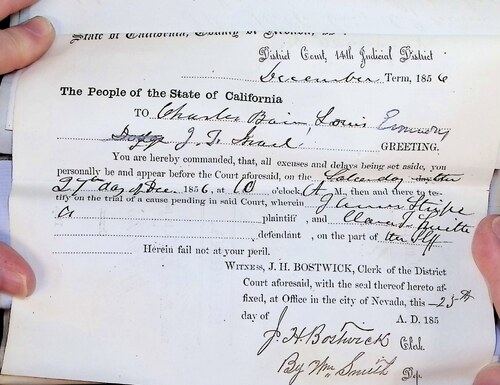 State of California, County of Nevada, ss.
District Court, 14th Judicial District
December Term, 1856
The People of the State of California
TO Charles Bain, Louis
J. T. GREETING.
You are hereby commanded, that, all excuses and delays being set aside, you
personally be and appear before the Court aforesaid, on the
27th day of Dec 1856, at 10 o'clock A M., then and there to tes-
tify on the trial of a cause pending in said Court, wherein James
plaintiff, and
defendant, on the part of the Plff
Herein fail not at your peril.
WITNESS, J. H. BOSTWICK, Clerk of the District
Court aforesaid, with the seal thereof hereto af-
fixed, at Office in the city of Nevada, this 25th
day of A. D. 185
J. H. Bostwick Clerk.
By Wm Smith Dep.